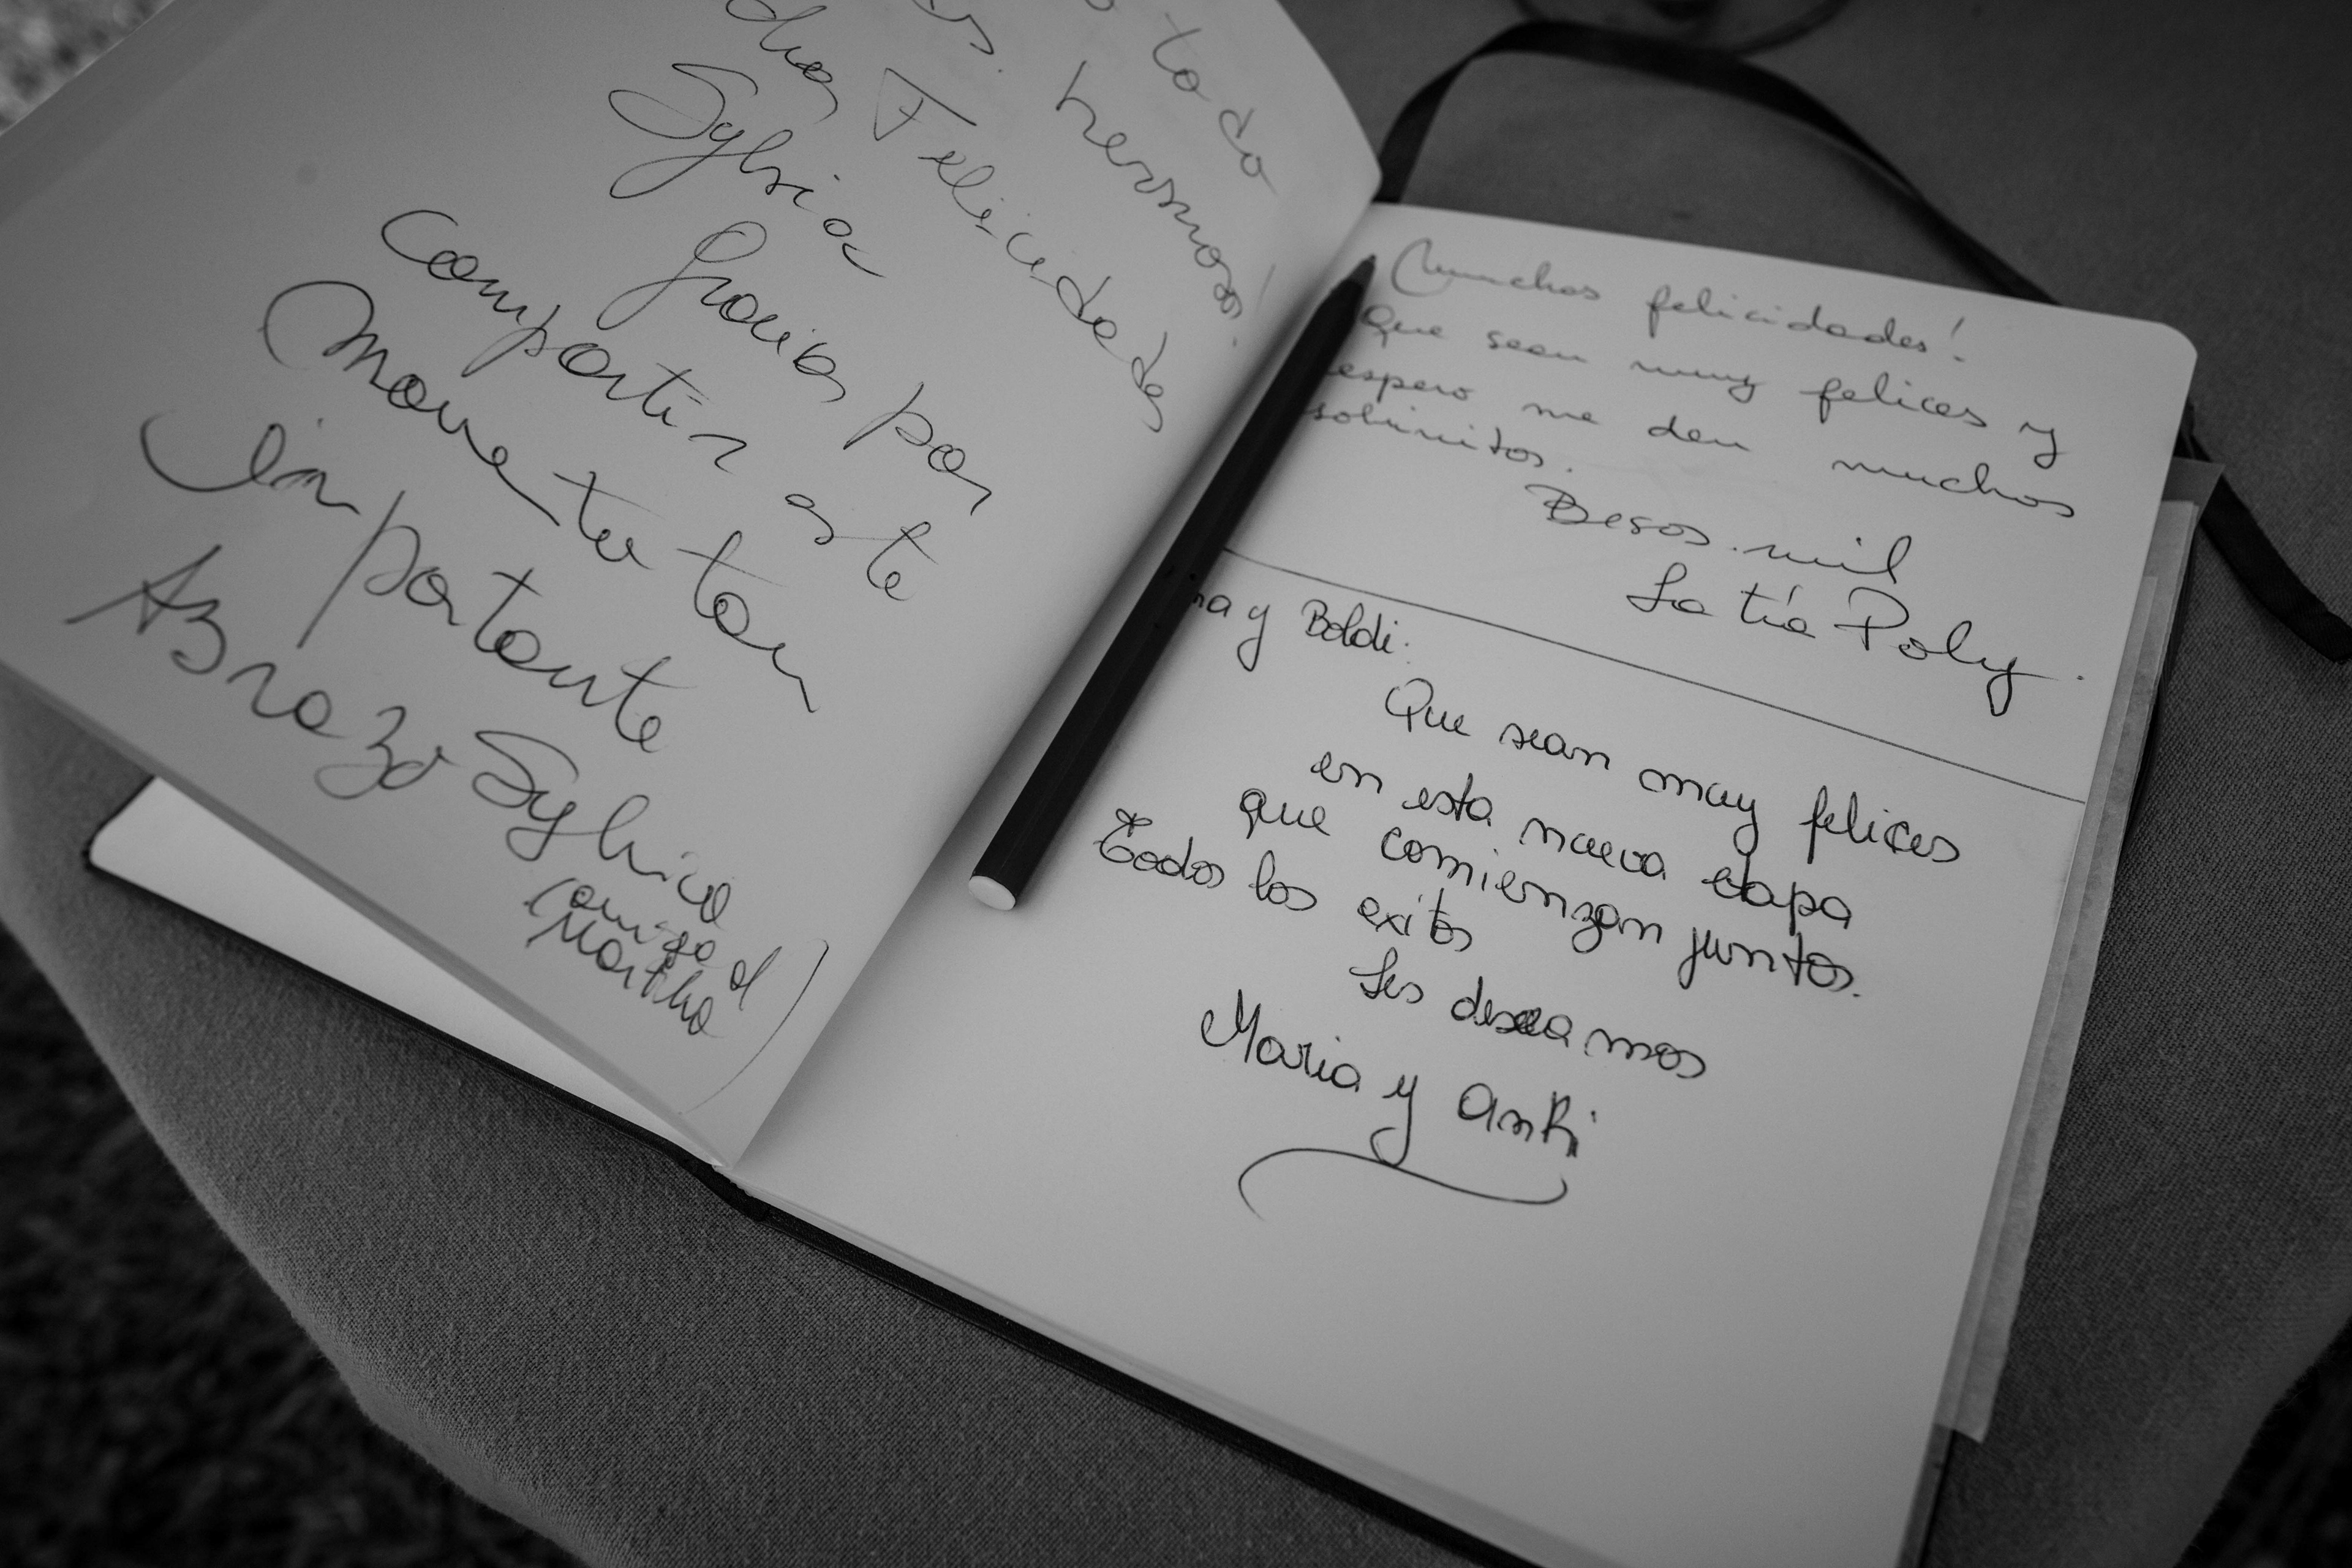 todo
hermoso!
chos Felicidades
Sylvia
Gracias por
compartir este
Momento tan
importante
Abrazo Sylvia
(amiga d
Martha)
Muchas felicidades!
Que sean muy felices y
espero me den muchos
sobrinitos.
Besos mil
La tía Poly.
y Boldi:
Que sean muy felices
en esta nueva etapa
que comienzan juntos.
Todos los exitos
les deseamos
Maria y Anki